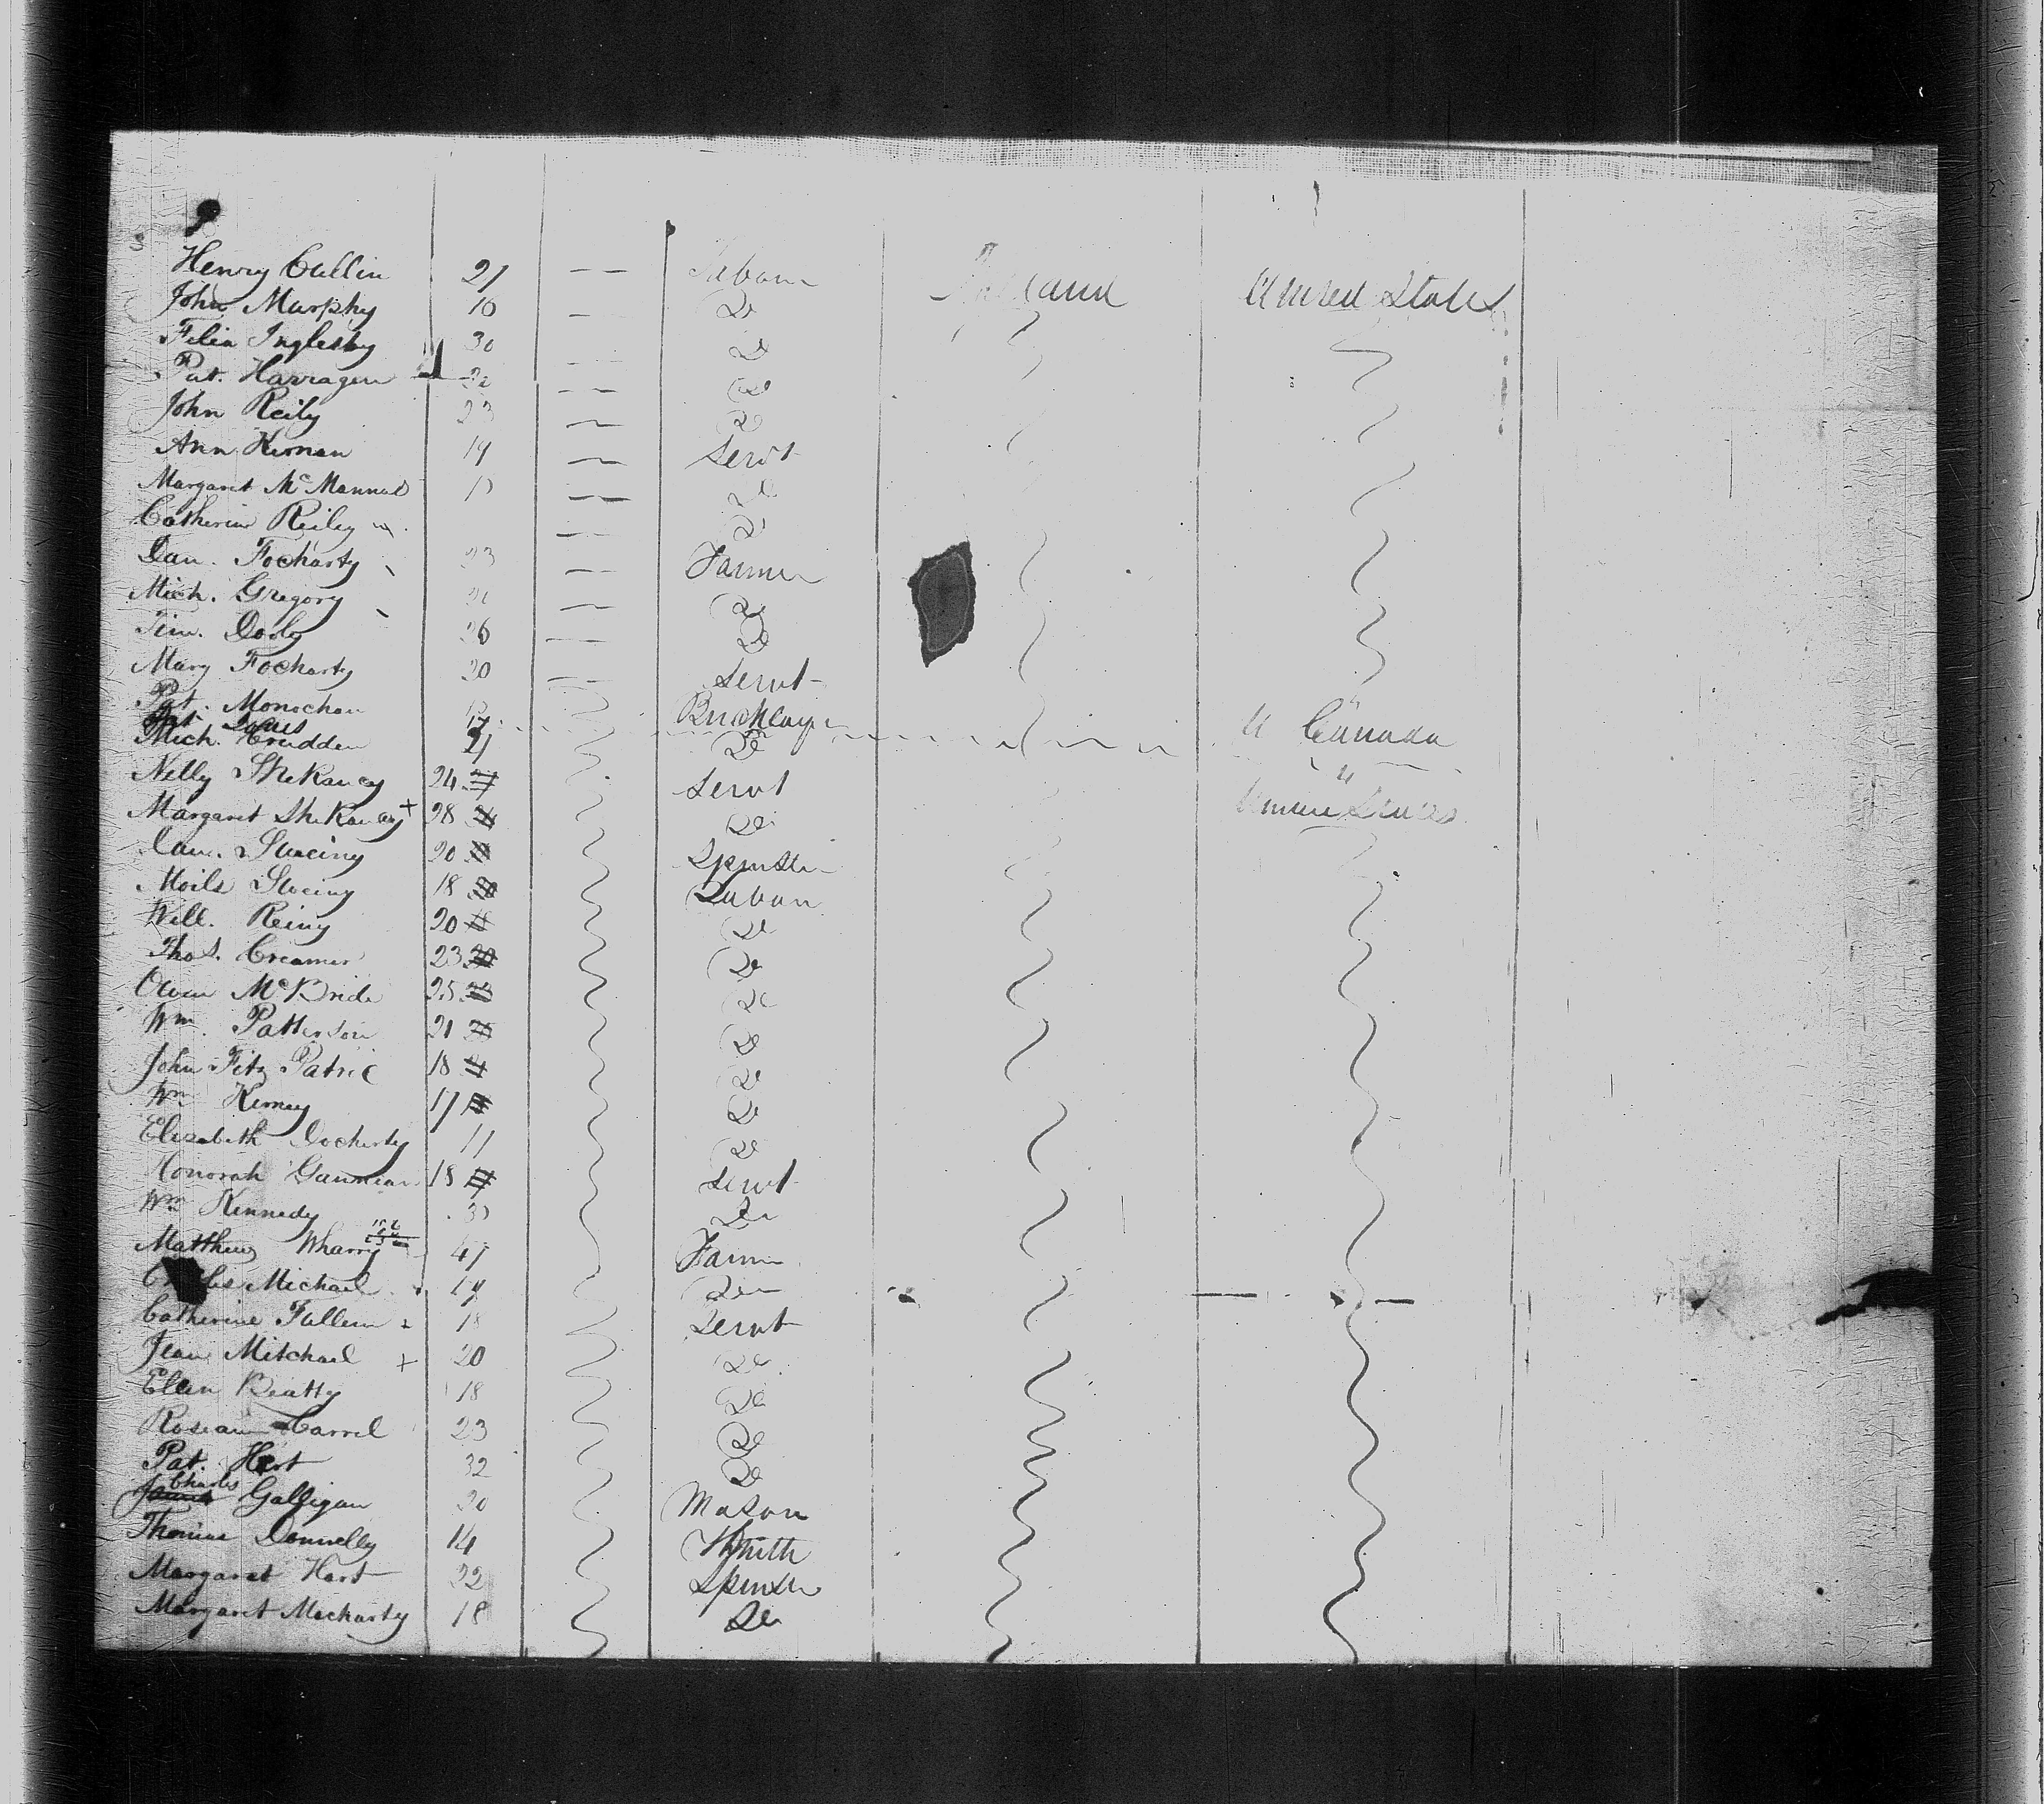 Henry Cullin 21 — — Labour Ireland United States
John Murphy 10 — Do
Felia Inglesby 30 — — Do
Pat. Harragen — — Do
John Reily 23 — — Do
Ann Kernan 19 — — Servt
Margaret McMannus — — Do
Catherine Reiley — — Do
Dan. Focharty 23 — — Farmer
Mich. Gregory — — Do
Tim. Dooly 26 — — Do
Mary Focharty 20 — — Servt
Pat. Monochan Bricklayer U Canada
Pat
Mich. Crudden 21 Do "
Nelly 24 Servt United States
Margaret + 28 Do
20 Spinster
18 Labour
Will. Reiny 20 Do
Thos. Creamer 23 Do
Owen McBride 25 Do
Wm. Patterson 21 Do
John Fitz Patric 18 Do
Wm Kerney 17 Do
Elizabeth Docherty 11 Do
Honorah 18 Servt
Wm Kennedy Do
Matthew Wharry 47 Farmer
Michael 19 Do
Catherine Fullem 18 Servt
Jean Mitchael + 20 Do
Ellen Beatty 18 Do
Roseann Carrol 23 Do
Pat. Hart 32 Do
Charles Galligan 20 Mason
Thomas Donnelly 14 Smith
Margaret Hart 22 Spinster
Margaret Mecharty 18 Do